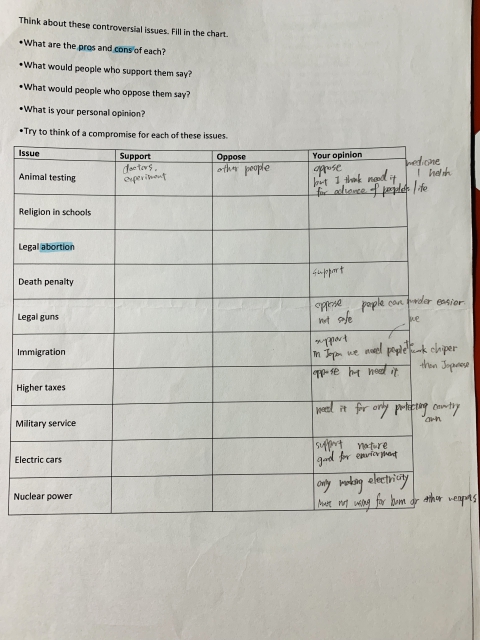 Think about these controversial issues. Fill in the chart.
•What are the pros and cons of each?
•What would people who support them say?
•What would people who oppose them say?
•What is your personal opinion?
•Try to think of a compromise for each of these issues.
Issue Support Oppose Your opinion
Animal testing doctors, other people oppose medicine
experiment but I think need it health
for advance of people's life
Religion in schools
Legal abortion
Death penalty support
Legal guns oppose people can murder easier
not safe
Immigration support
In Japan we need people chiper
than Japanese
Higher taxes oppose but need it
Military service need it for only protecting country
own
Electric cars support nature
good for
Nuclear power only making electricity
not using for or other weapons